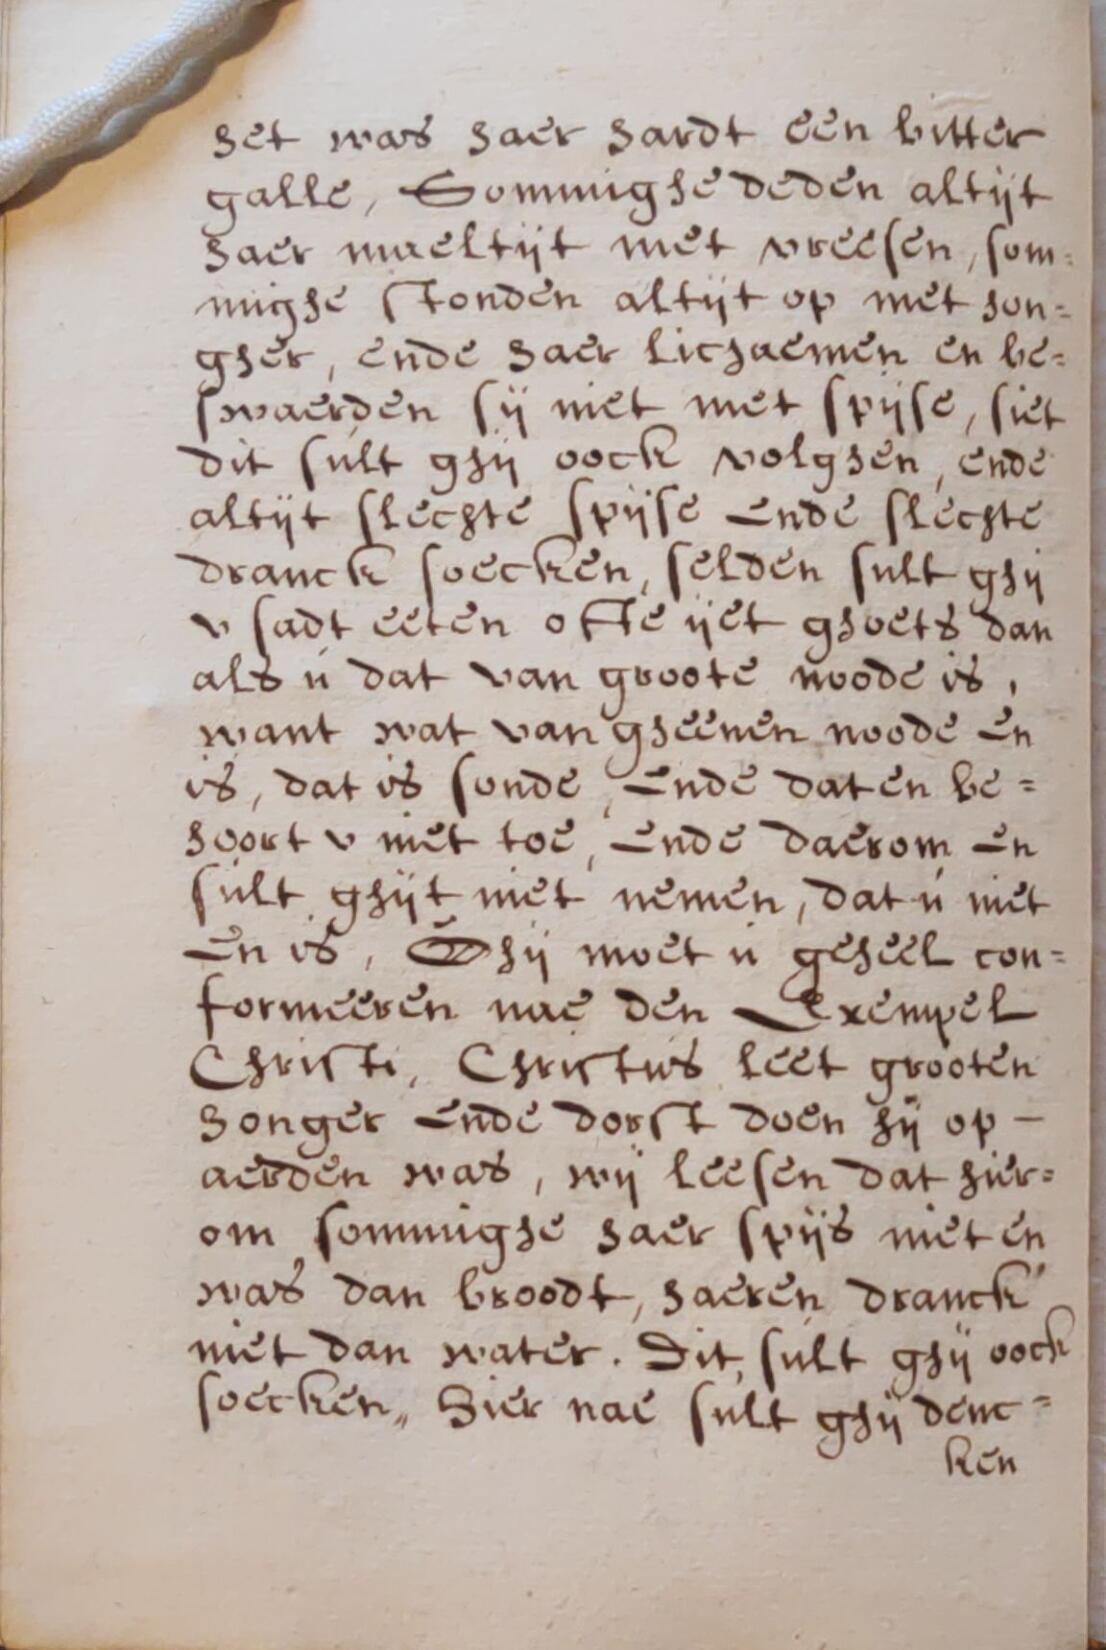 het was haer hardt een bitter
galle, Sommighe deden altijt
haer maeltijt met vreesen, som-
mighe stonden altijt op met hon=
gher, ende haer lichaemen en be=
swaerden sij niet met spijse, siet
dit sult ghij oock volghen, ende
altijt slechte spijse ende slechte
dranck soecken, selden sult ghij
v sadt eeten ofte ijet ghoets dan
als u dat van groote noode is,
want wat van gheenen noode en
is, dat is sonde, ende dat en be=
hoort v niet toe, ende daerom en
sult ghijt niet nemen, dat u niet
en is, Ghij moet u geheel con=
formeeren nae den Exempel
Christi, Christus leet grooten
honger ende dorst doen hij op
aerden was, wij leesen dat hier=
om sommighe haer spijs niet en
was dan broodt, haeren dranck
niet dan water. Dit sult ghij oock
soecken,, Hier nae sult ghij denc=
ken